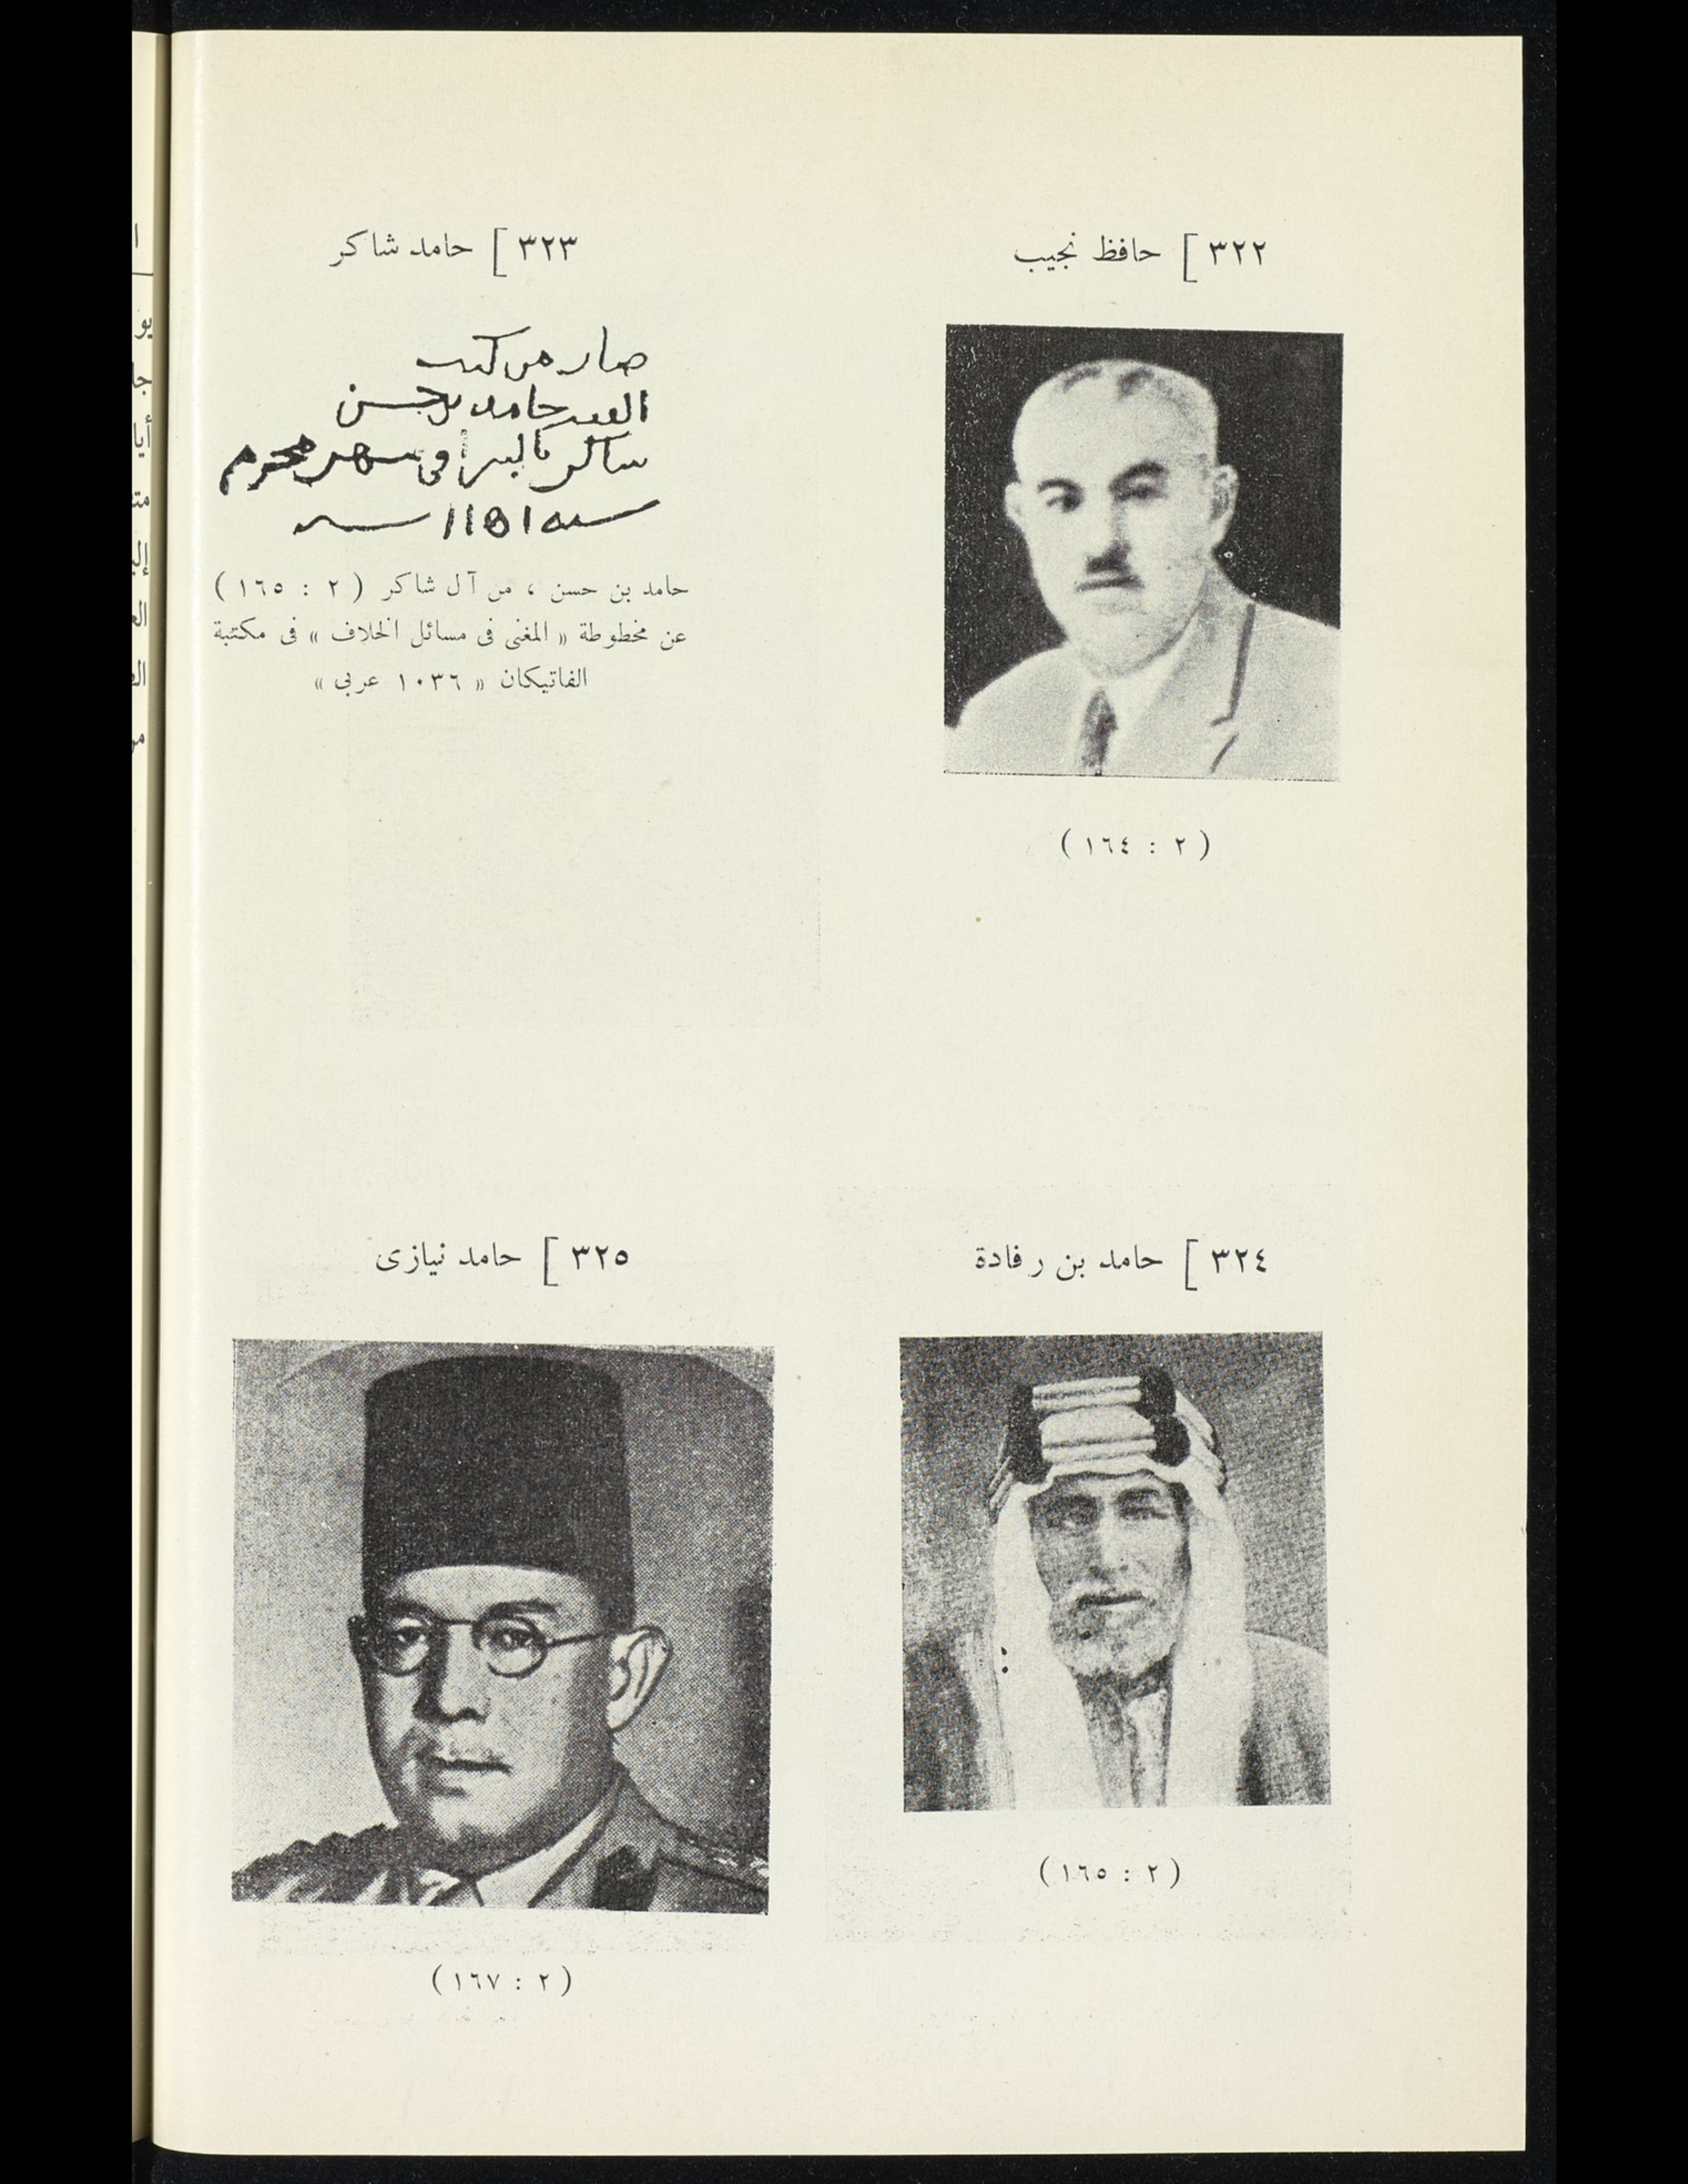 ٣٢٢ ] حافظ نجيب
( ٢ : ١٦٤ )
٣٢٣ ] حامد شاكر
صار من كتب
العبد حامد بن حسن
شاكر بالشراء في شهر محرم
سنة ١١٥١
حامد بن حسن ، من آل شاكر ( ٢ : ١٦٥ )
عن مخطوطة « المغنى فى مسائل الخلاف » فى مكتبة
الفاتيكان « ١٠٣٦ عربى »
٣٢٤ ] حامد بن رفادة
( ٢ : ١٦٥ )
٣٢٥ ] حامد نيازى
( ٢ : ١٦٧ )